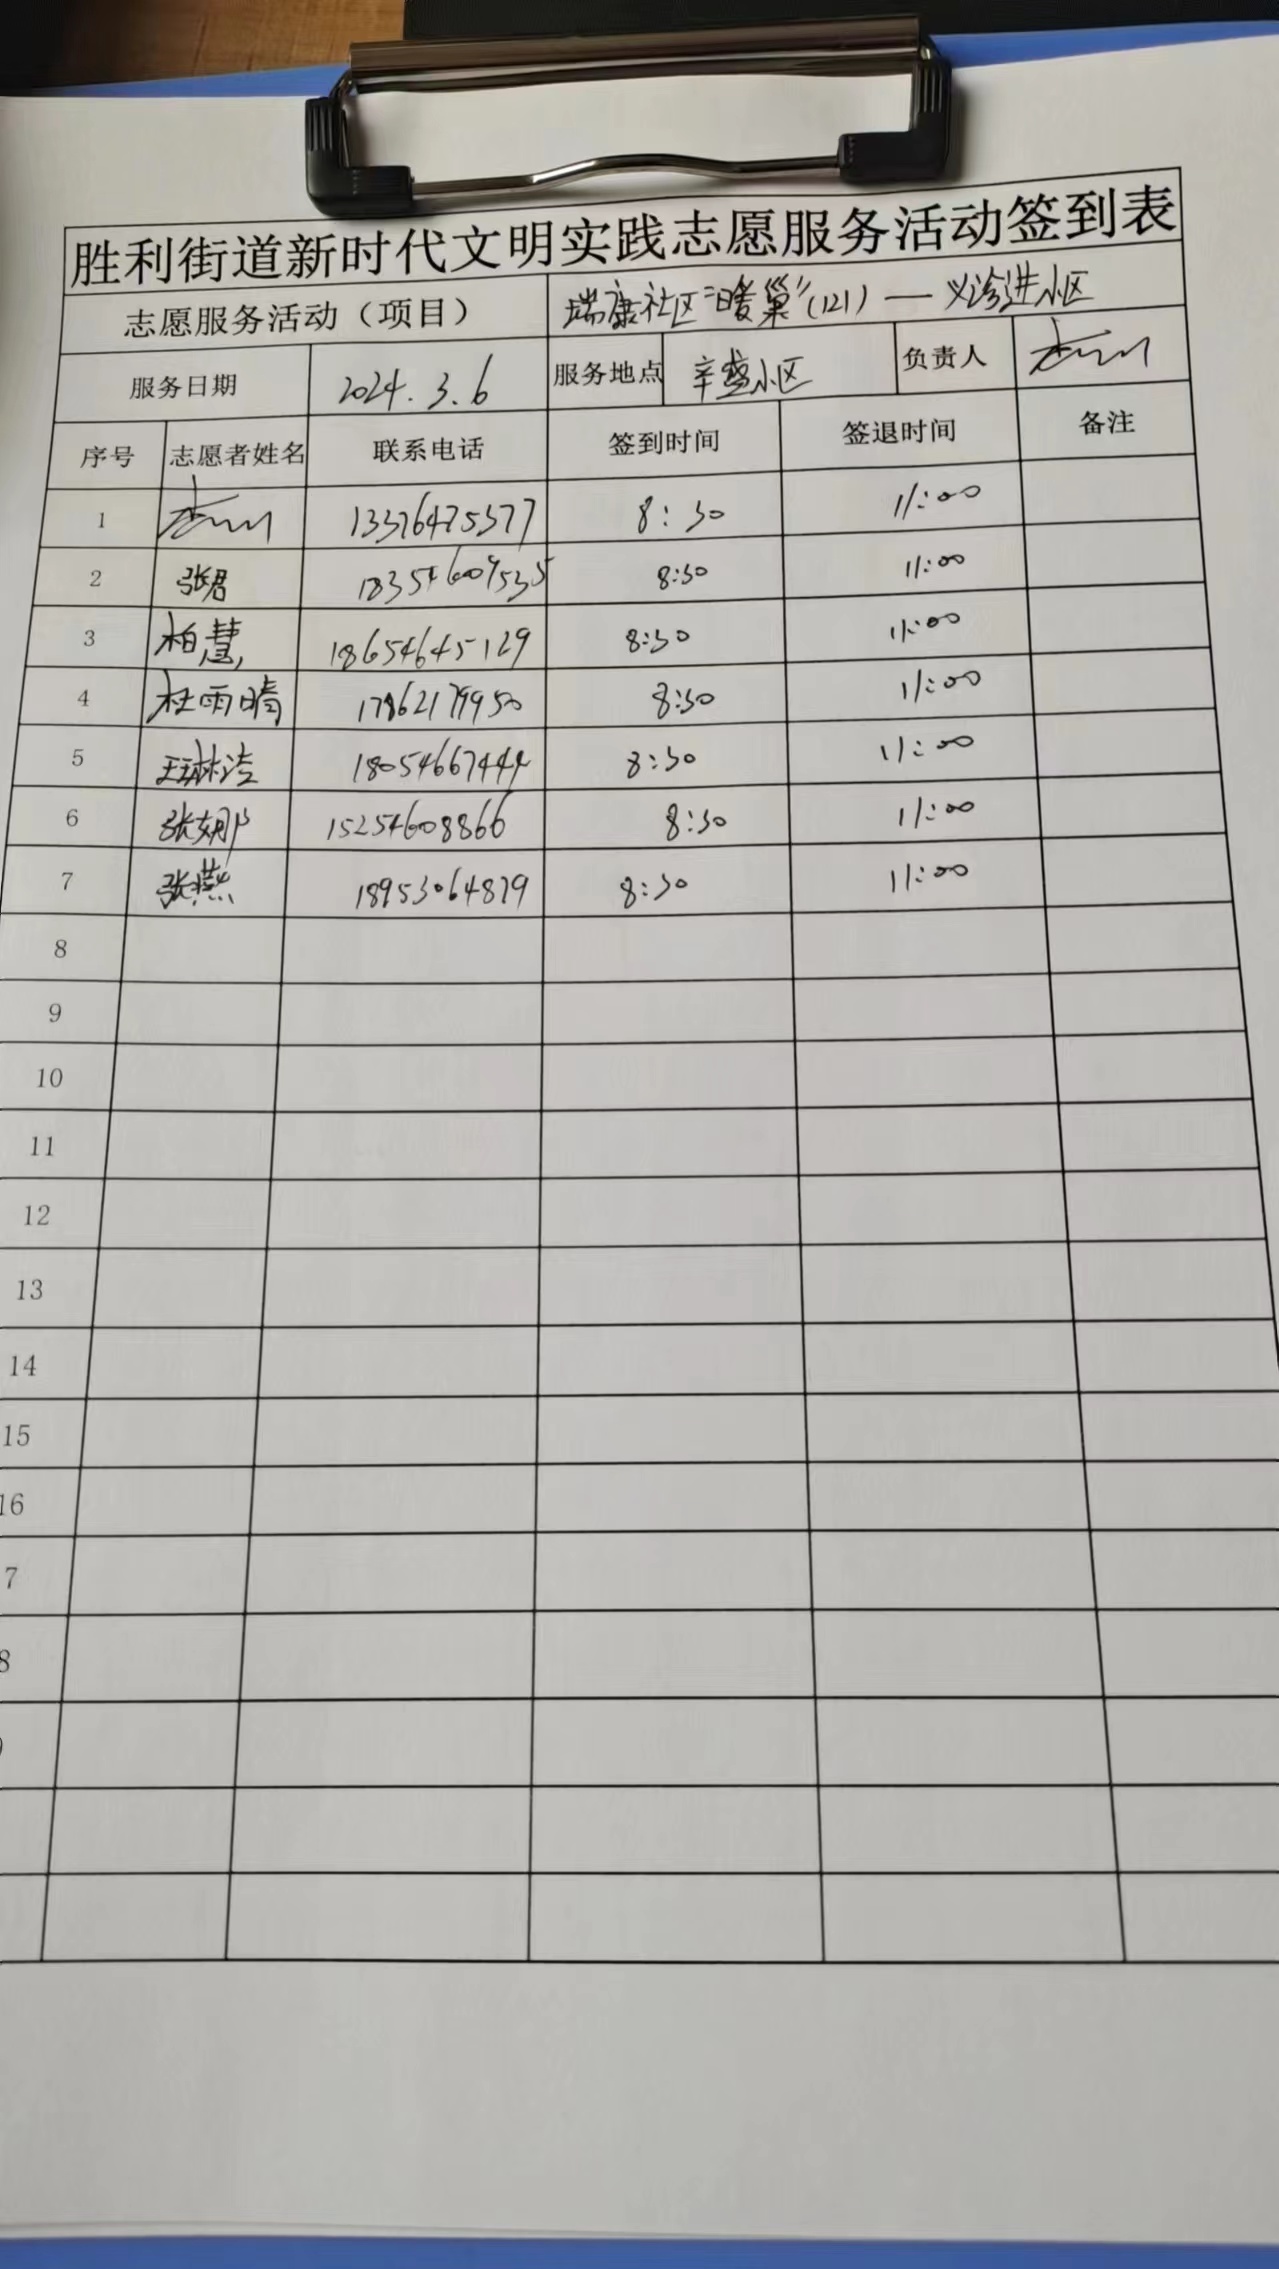 胜利街道新时代文明实践志愿服务活动签到表
志愿服务活动（项目） 瑞康社区“暖巢”(121) — 义诊进小区
服务日期 2024.3.6 服务地点 辛盛小区 负责人
序号 志愿者姓名 联系电话 签到时间 签退时间 备注
1 13376475377 8:30 11:00
2 张君 18354609535 8:30 11:00
3 柏慧 18654645129 8:30 11:00
4 杜雨晴 17862179950 8:30 11:00
5 王琳洁 18054667444 8:30 11:00
6 张娜 15254608866 8:30 11:00
7 张燕 18953064879 8:30 11:00
8
9
10
11
12
13
14
15
16
7
8